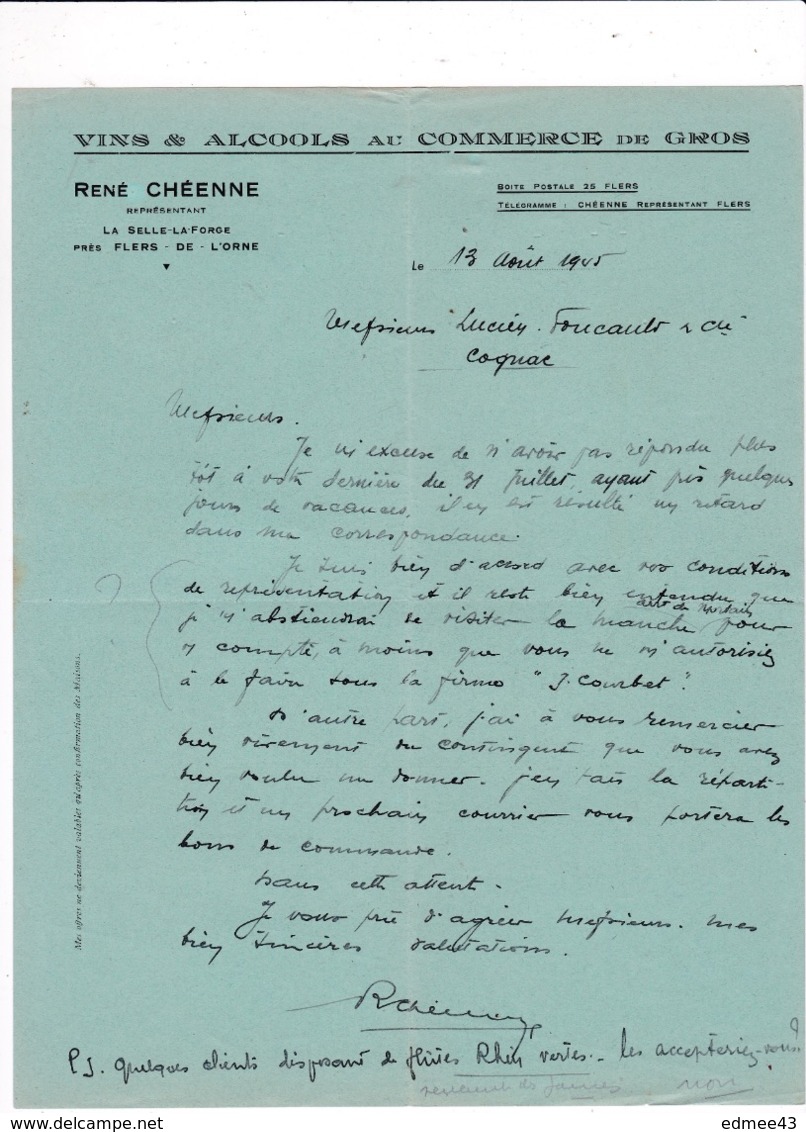 VINS & ALCOOLS AU COMMERCE DE GROS
RENÉ CHÉENNE
REPRÉSENTANT
LA SELLE-LA-FORGE
PRÈS FLERS - DE - L'ORNE
BOITE POSTALE 25 FLERS
TÉLÉGRAMME : CHÉENNE REPRÉSENTANT FLERS
Le 13 Août 1945
Messieurs Lucien-Foucauld & Cie
Cognac
Messieurs.
Je m'excuse de n'avoir pas répondu plus
tôt à votre dernière du 31 Juillet, ayant pris quelques
jours de vacances, il en est résulté un retard
dans ma correspondance.
Je suis bien d'accord avec vos conditions
de représentation et il reste bien entendu que
je m'abstiendrai de visiter la Manche, pour
arr. de Mortain
v compte, à moins que vous ne m'autorisiez
à le faire sous la firme "J. Courbet".
D'autre part, j'ai à vous remercier
bien vivement du contingent que vous avez
bien voulu me donner. J'en fais la réparti-
tion et un prochain courrier vous portera les
bons de commande.
Dans cette attente.
Je vous prie d'agréer Messieurs. mes
bien sincères salutations.
RChéenne
P.S. Quelques clients disposant de flûtes Rhin vertes.- les accepteriez-vous?
seulement des jaunes non
?
Mes offres ne deviennent valables qu'après confirmation des Maisons.
edmee43